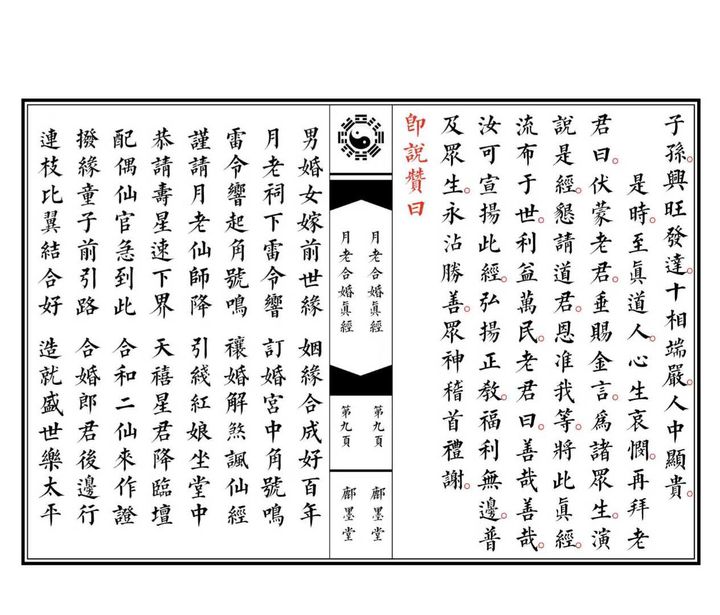 子孫興旺發達。十相端嚴。人中顯貴。
是時。至眞道人。心生哀憫。再拜老
君曰。伏蒙老君。垂賜金言。爲諸眾生。演
說是經。懇請道君。恩准我等。將此眞經。
流布于世。利益萬民。老君曰。善哉善哉。
汝可宣揚此經。弘揚正教。福利無邊。普
及眾生。永沾勝善。眾神稽首禮謝。
卽說贊曰
月老合婚眞經
月老合婚眞經
第九頁
第九頁
鄘墨堂
鄘墨堂
男婚女嫁前世緣 姻緣合成好百年
月老祠下雷令響 訂婚宮中角號鳴
雷令響起角號鳴 禳婚解煞諷仙經
謹請月老仙師降 引綫紅娘坐堂中
恭請壽星速下界 天禧星君降臨壇
配偶仙官急到此 合和二仙來作證
撥緣童子前引路 合婚郎君後邊行
連枝比翼結合好 造就盛世樂太平